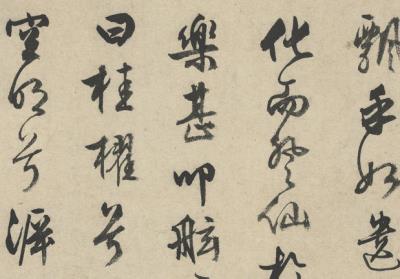 飄乎如遺
化而登仙於
樂甚叩舷
曰桂櫂兮
空明兮